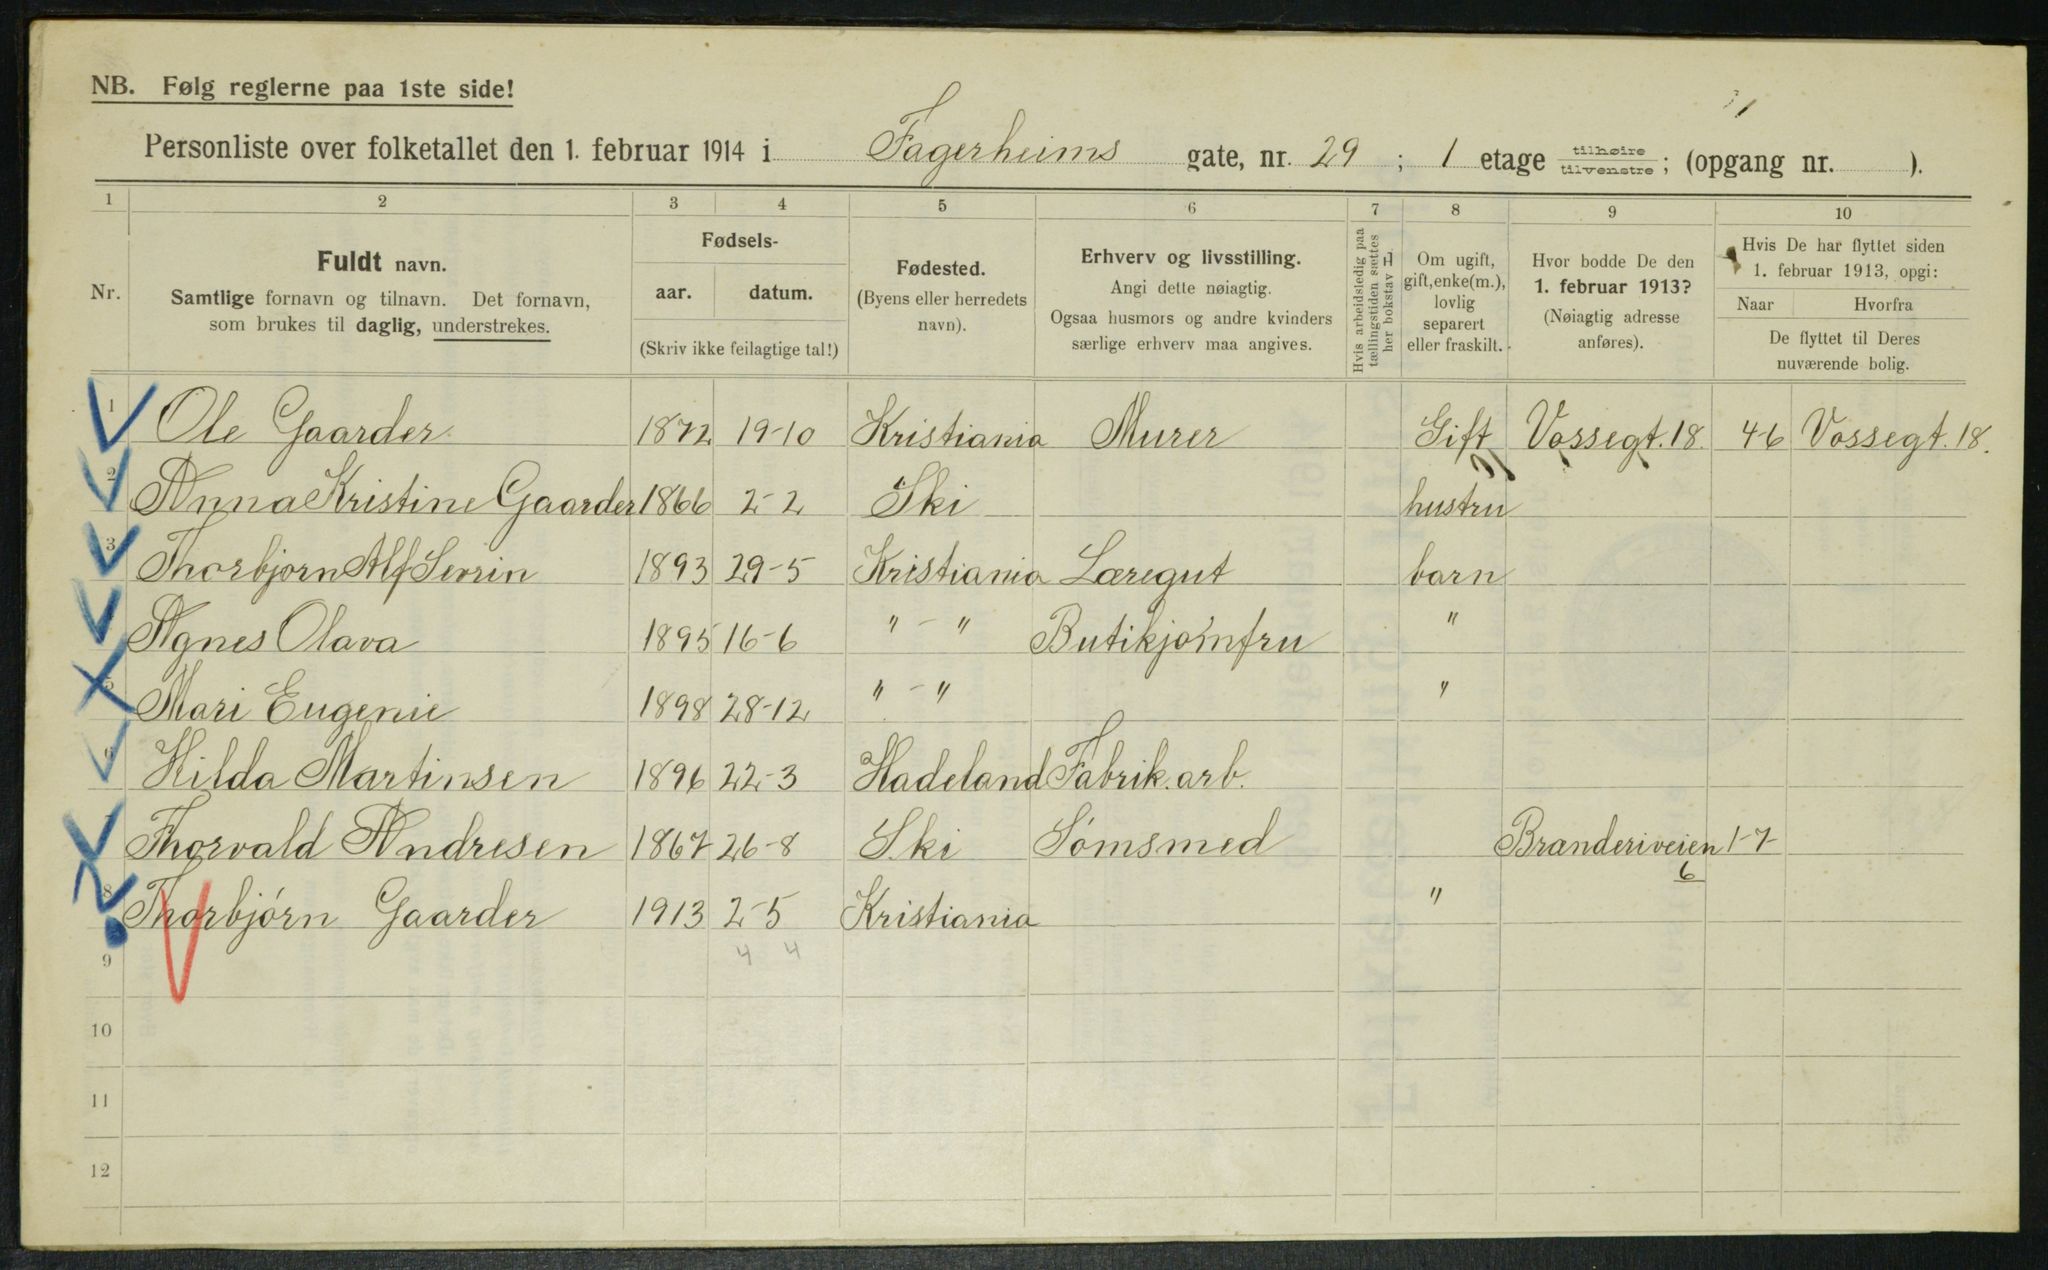 NB. Følg reglerne paa 1ste side!
Personliste over folketallet den 1. februar 1914 i Fagerheims gate, nr. 29 ; 1 etage tilhøire tilvenstre ; (opgang nr. ).
1 2 3 4 5 6 7 8 9 10
Nr.
Fuldt navn.
Samtlige fornavn og tilnavn. Det fornavn,
som brukes til daglig, understrekes.
Fødsels-
aar. datum.
(Skriv ikke feilagtige tal!)
Fødested.
(Byens eller herredets
navn).
Erhverv og livsstilling.
Angi dette nøiagtig.
Ogsaa husmors og andre kvinders
særlige erhverv maa angives.
Hvis arbeidsledig paa
tællingstiden sættes
her bokstav L.
Om ugift,
gift, enke(m.),
lovlig
separert
eller fraskilt.
Hvor bodde De den
1. februar 1913?
(Nøiagtig adresse
anføres).
Hvis De har flyttet siden
1. februar 1913, opgi:
Naar Hvorfra
De flyttet til Deres
nuværende bolig.
1 Ole Gaarder 1872 19-10 Kristiania Murer Gift Vossegt. 18. 4-6 Vossegt. 18.
2 Anna Kristine Gaarder 1866 2-2 Ski hustru
3 Thorbjorn Alf Sevrin 1893 29-5 Kristiania Læregut barn
Agnes Olava 1895 16-6 " - " Butikjomfru "
5 Mari Eugenie 1898 28-12 " - " "
6 Hilda Martinsen 1896 22-3 Hadeland Fabrik. arb.
7 Thorvald Andresen 1867 26-8 Ski Sómsmed Branderiveien 1-7
6
8 Thorbjórn Gaarder 1913 2-5 Kristiania "
9 4 4
10
11
12